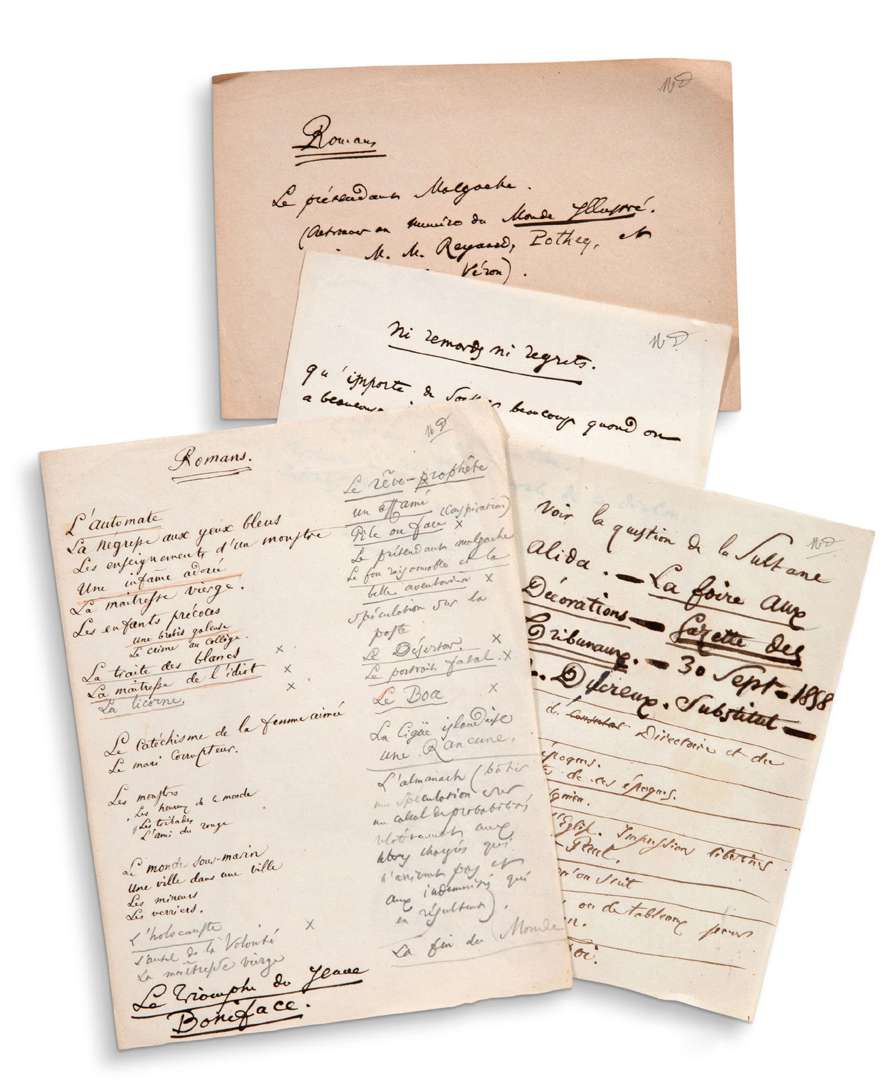 Romans
Le prétendant Malgache.
(Retrouver un numéro du Monde Illustré.
M. M. Reynard, Pothey, et
Véron).
ni remords ni regrets.
qu'importe de beaucoup quand on
a beaucoup
Romans.
L'automate
La Négresse aux yeux bleus
Les enseignements d'un monstre
Une infâme adorée
La maîtresse vierge.
Les enfants précoces
Une brebis galeuse
Le crime au collège.
La traite des blancs ×
La maîtresse de l'idiot ×
La licorne ×
Le catéchisme de la femme aimée
Le mari corrupteur.
Les monstres
Les heureux de ce monde
Les tribades
L'ami du rouge
Le monde sous-marin
Une ville dans une ville
Les mineurs
Les verriers.
L'holocauste ×
L'autel de la Volonté
La maîtresse vierge
Le Triomphe du Jeune
Boniface.
Le rêve-prophète
un affamé
Pile ou face × (Conspiration)
Le prétendant malgache
Le fou raisonnable et la
belle aventurière ×
spéculation sur la
poste
Le Déserteur. ×
Le portrait fatal. ×
Le Boa ×
La Ciguë islandaise
une Rancune.
L'almanach (bâtir
une spéculation sur
un calcul de probabilités
relativement aux
lettres chargées qui
n'arrivent pas et
aux indemnités qui
en résultent).
La fin du Monde
Voir la question de la Sultane
Alida. — La foire aux
Décorations — Gazette des
Tribunaux. — 30 Sept = 1858
Ducreux. Substitut —
Directoire et du
époques.
de ces époques.
l'Église. Impression
qu'on suit
ou de tableaux pour